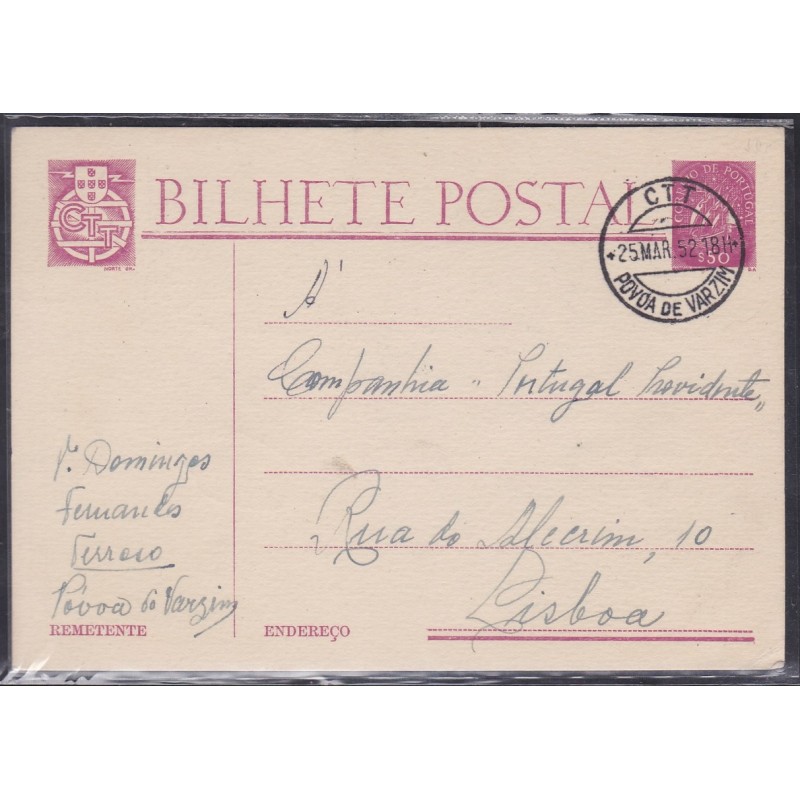 CTT
HORTA GR.
BILHETE POSTAL
CORREIO DE PORTUGAL
$50
CTT
25 MAR. 52. 18H
PÓVOA DE VARZIM
À
Companhia "Portugal Previdente"
Rua do Alecrim, 10
Lisboa
P. Domingos
Fernandes
Terroso
Póvoa do Varzim
REMETENTE
ENDEREÇO